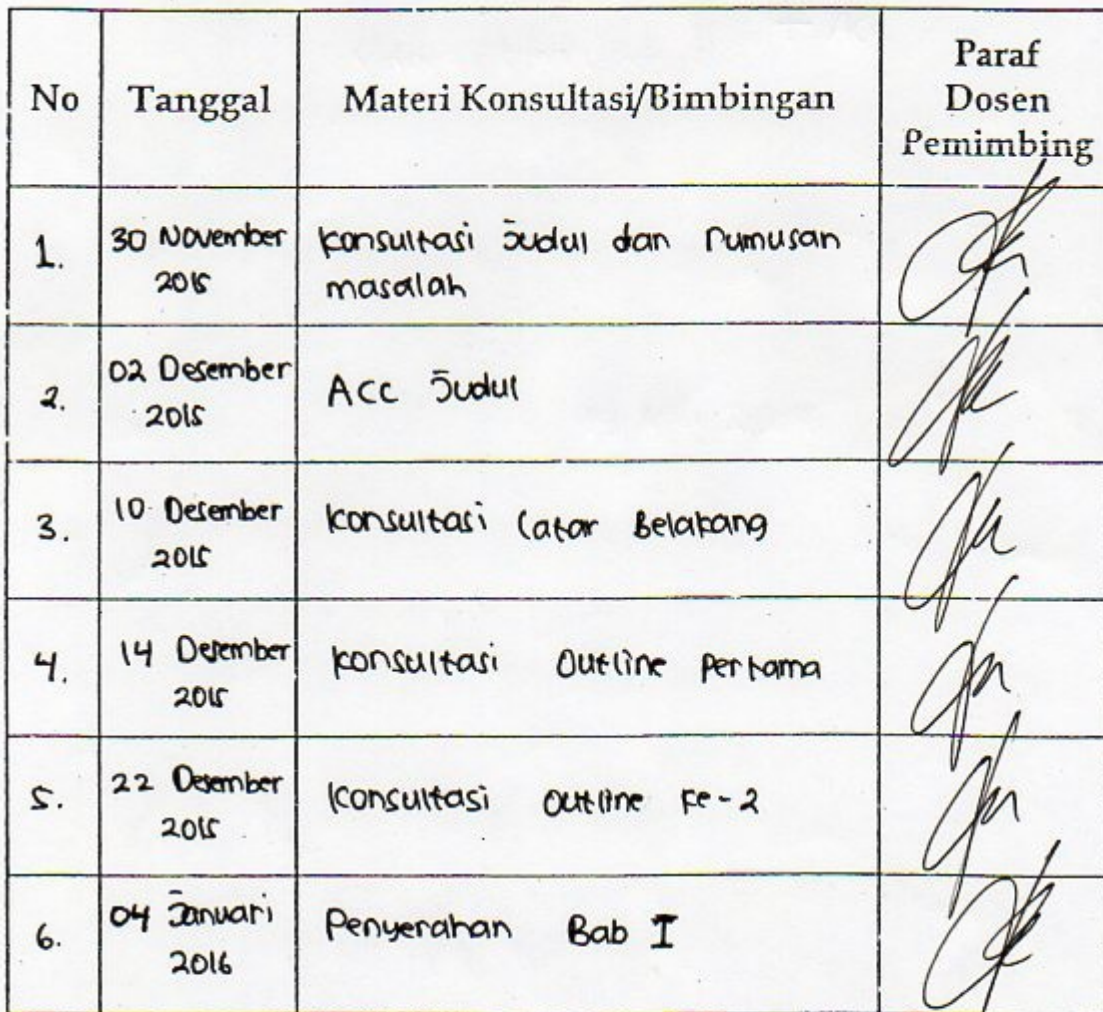 No Tanggal Materi Konsultasi/Bimbingan Paraf
Dosen
Pemimbing
1. 30 November konsultasi Judul dan rumusan
2015 masalah
2. 02 Desember ACC Judul
2015
3. 10 Desember konsultasi Latar Belakang
2015
4. 14 Desember konsultasi Outline Pertama
2015
5. 22 Desember konsultasi Outline ke-2
2015
6. 04 Januari Penyerahan Bab I
2016